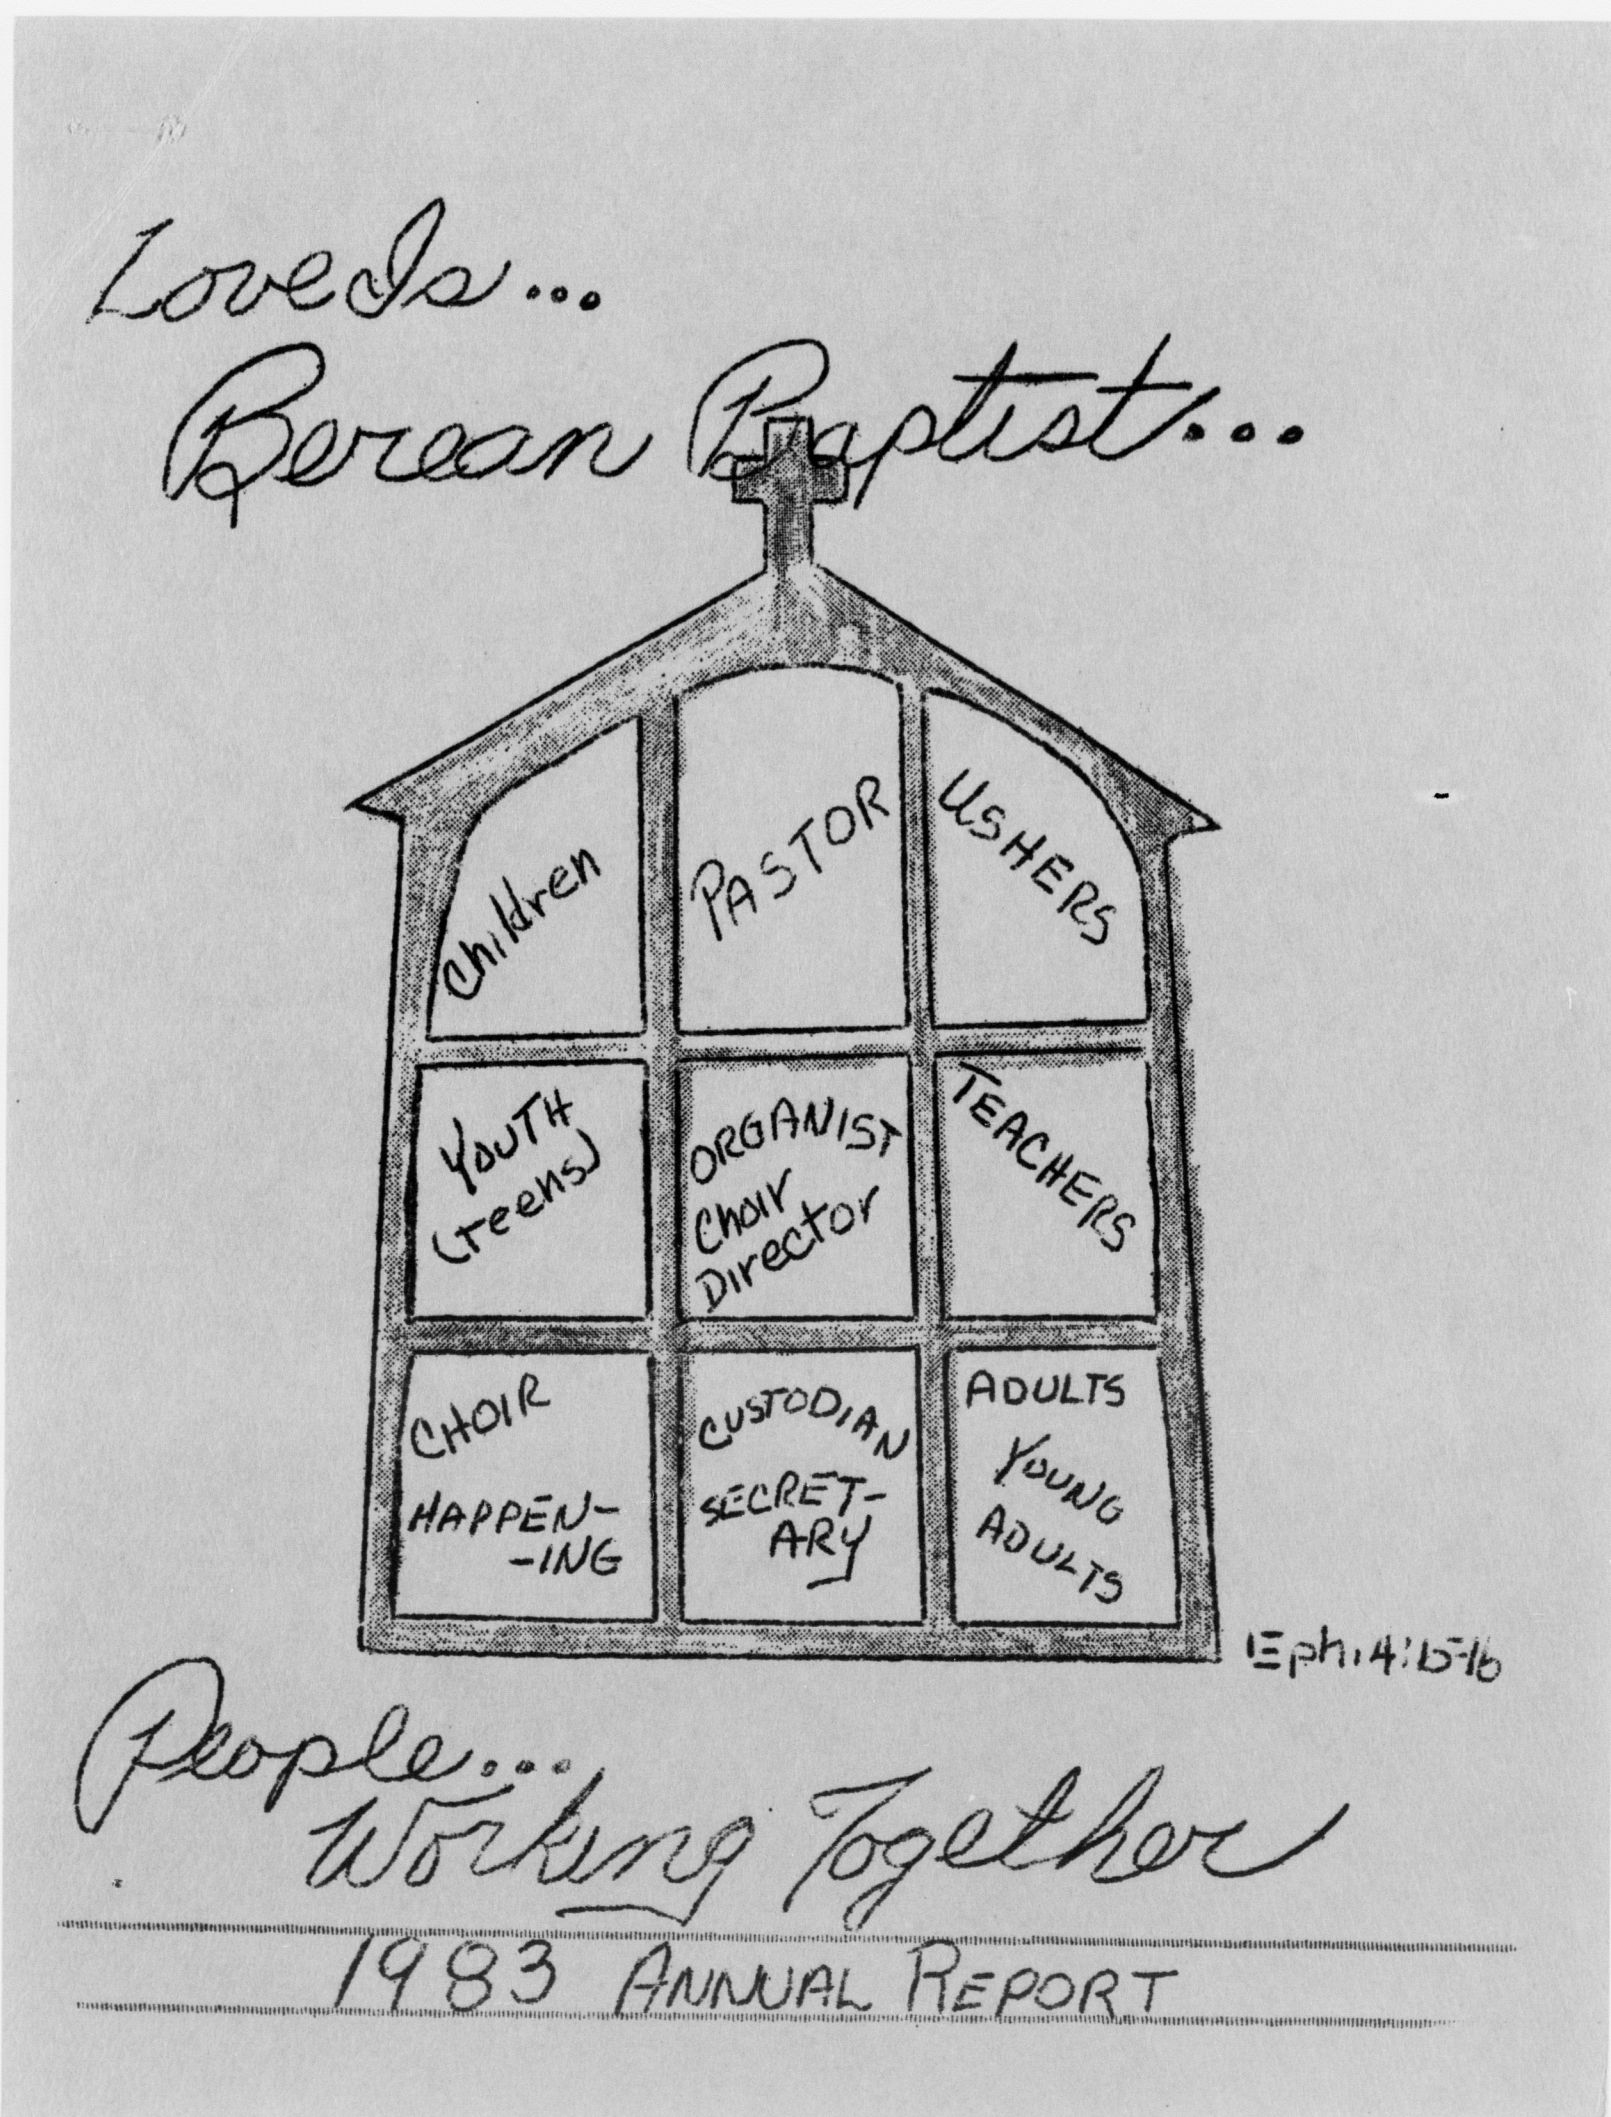 Love Is...
Berean Baptist...
Children
PASTOR
USHERS
YOUTH
(Teens)
ORGANIST
Choir
Director
TEACHERS
CHOIR
HAPPEN-
-ING
CUSTODIAN
SECRET-
ARY
ADULTS
YOUNG
ADULTS
Eph. 4:15-16
People...
Working Together
1983 ANNUAL REPORT